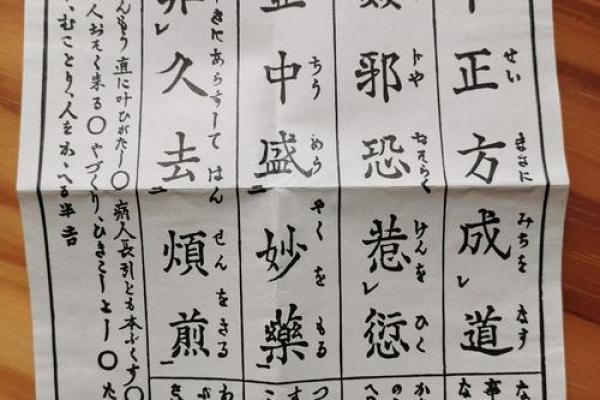 せい まさに みちを なす
正方成レ道
じや おそらく けんを ひく
邪恐惹レ愆
ちう めう やくを もる
中盛二妙藥一
きにあらずして はん せん をさる
非レ久去二煩煎一
直に叶ひがたし〇病人長引とも本ぶくす〇
人おそく来る〇やづくり、ひきこしよし〇
むことり、人をかゝへる半吉